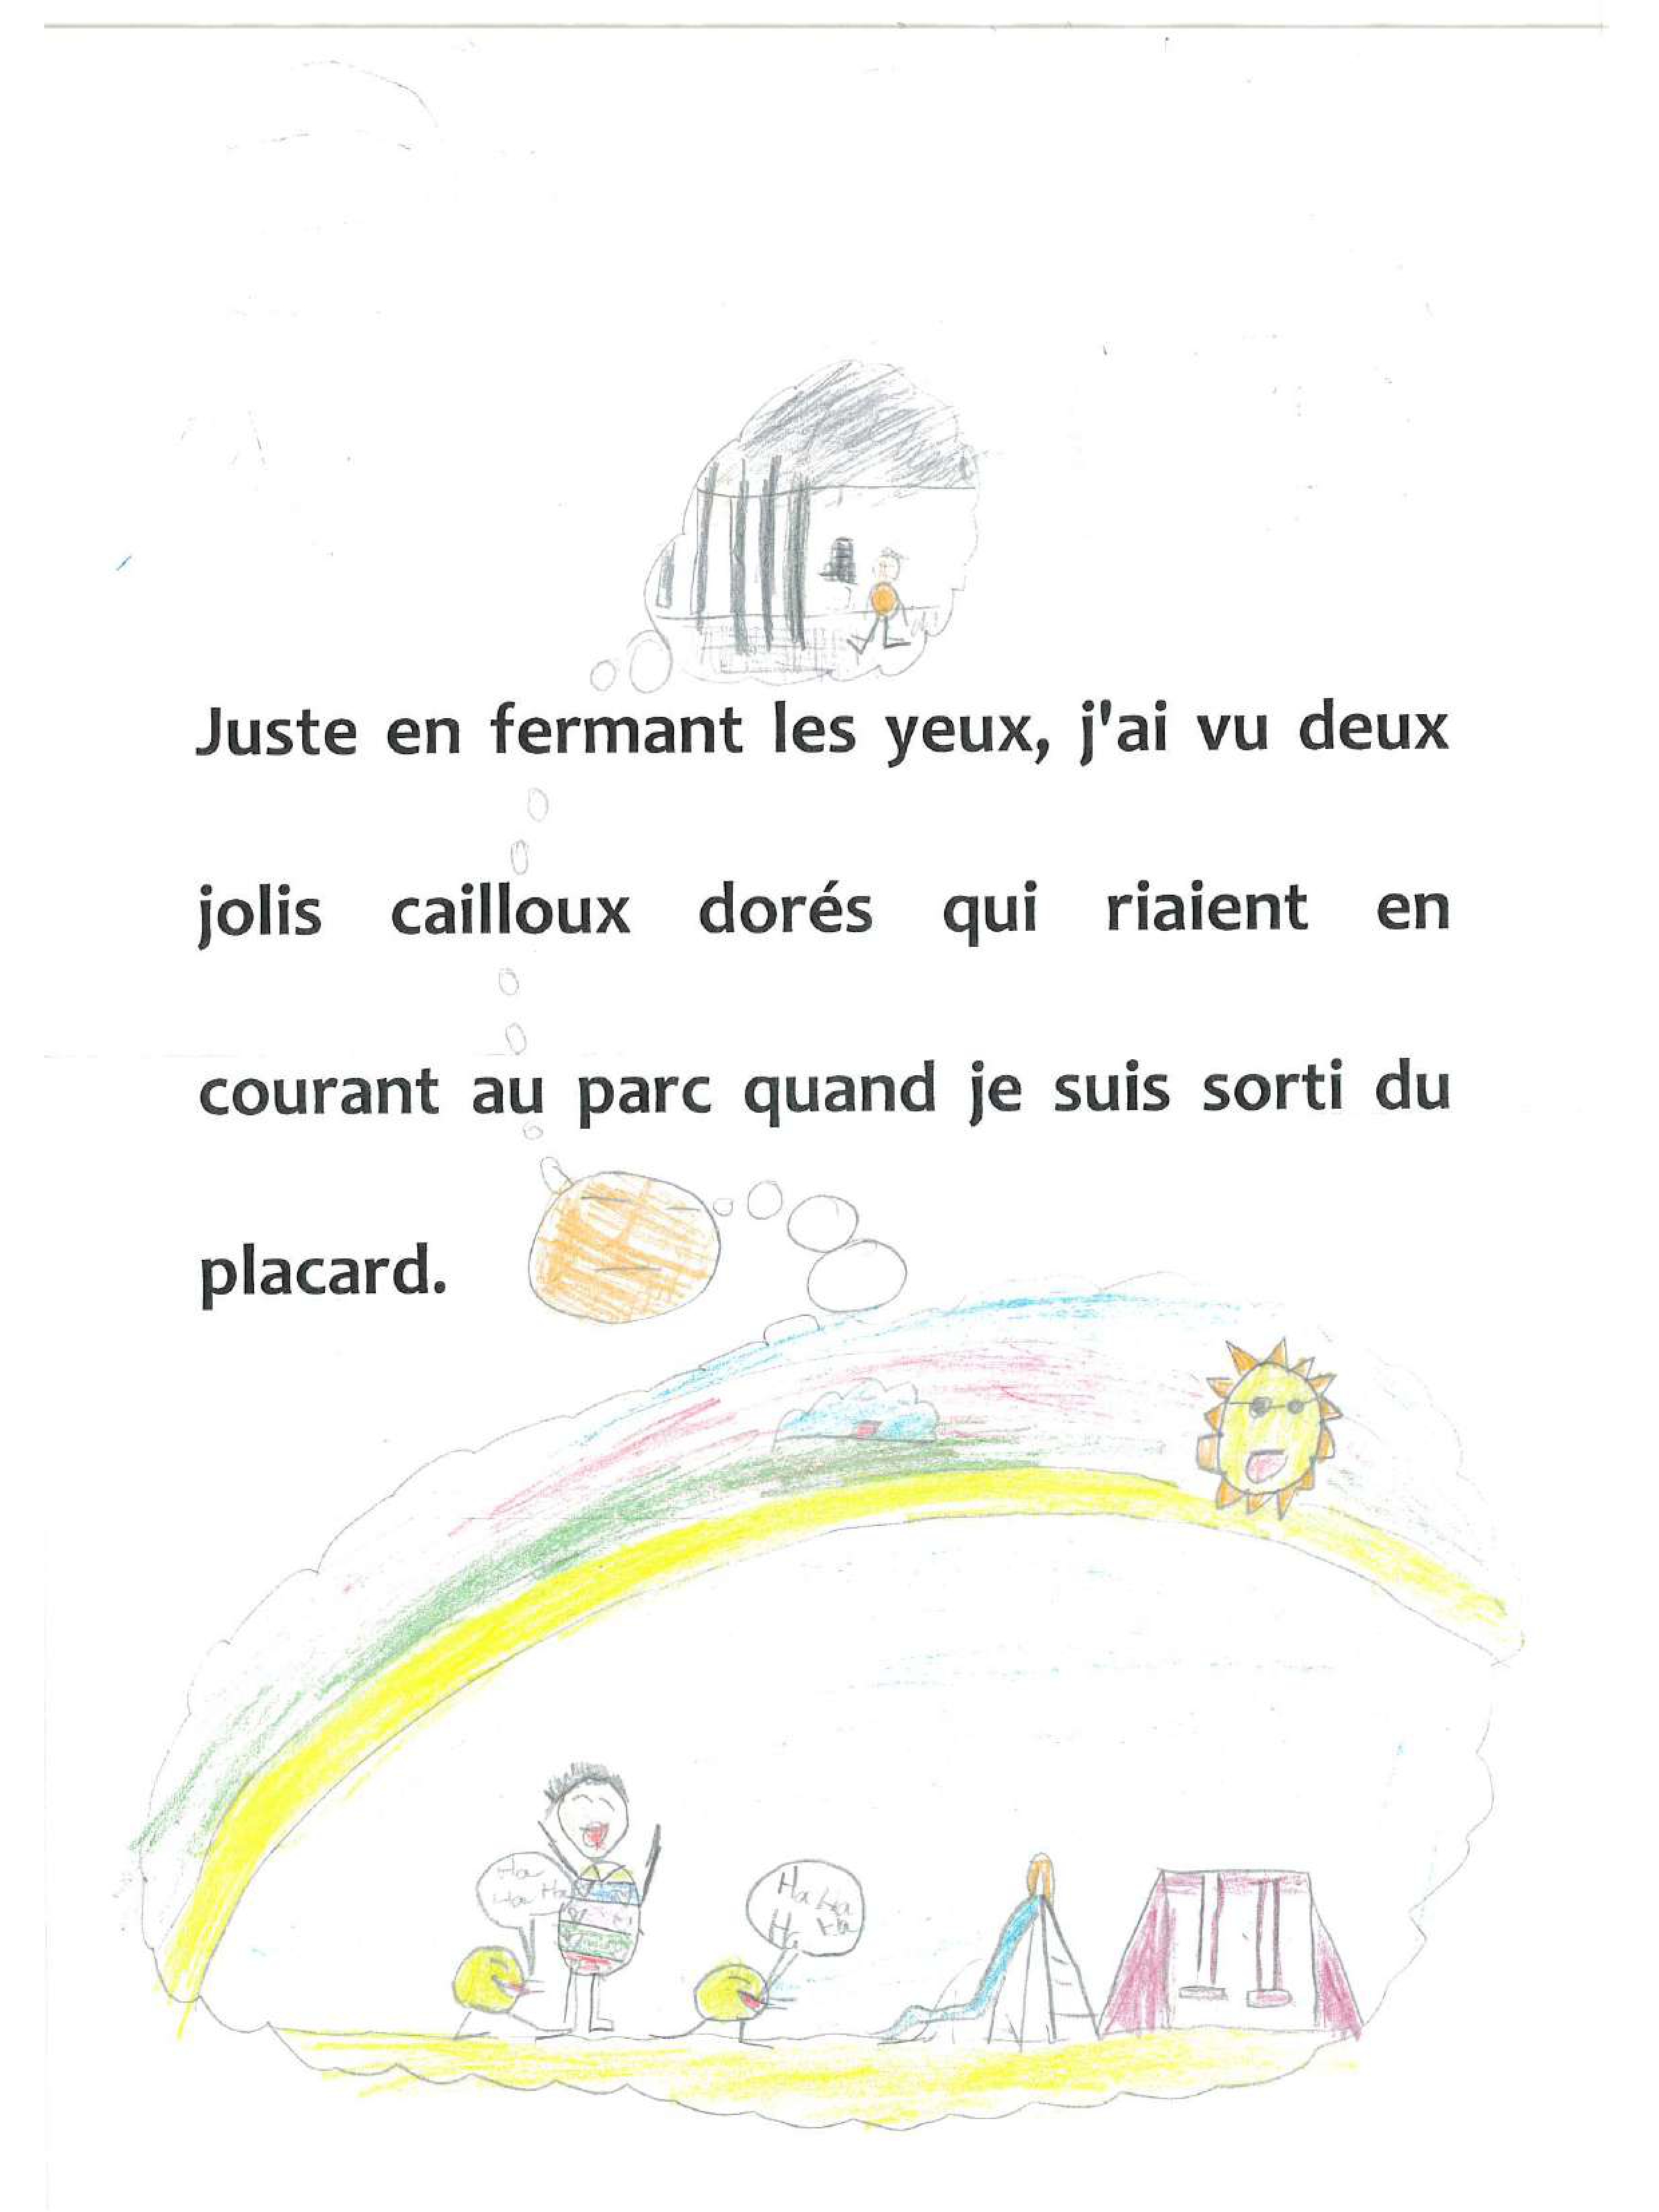 Juste en fermant les yeux, j'ai vu deux
jolis cailloux dorés qui riaient en
courant au parc quand je suis sorti du
placard.
Ha
Ha Ha
Ha ha
Ha Ha